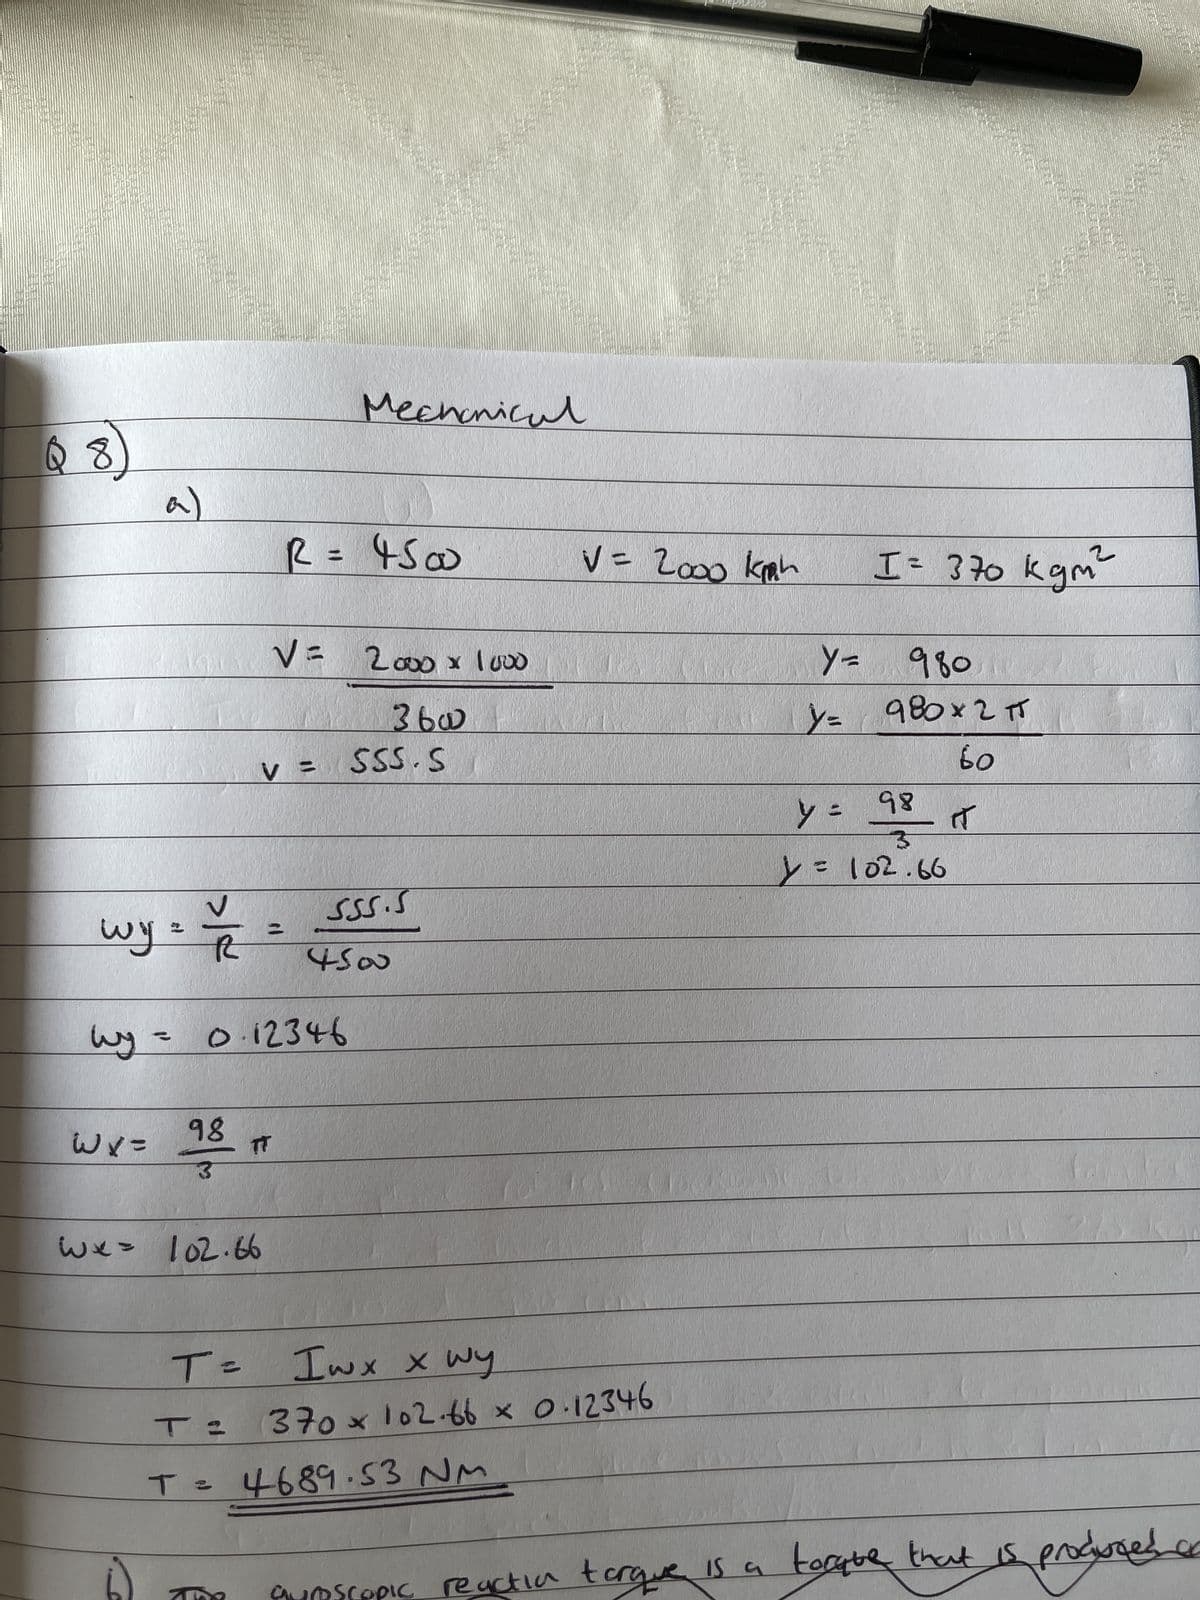 Mechanical
Q 8)
a)
R = 4500 V = 2000 kmh I = 370 kgm²
V = 2000 x 1000 y = 980
3600 y = 980 x 2 π
v = 555.5 60
y = 98 π
3
y = 102.66
wy = V = 555.5
R 4500
wy = 0.12346
wx = 98 π
3
wx = 102.66
T = Iwx x wy
T = 370 x 102.66 x 0.12346
T = 4689.53 NM
b) The gyroscopic reaction torque is a torque that is produced